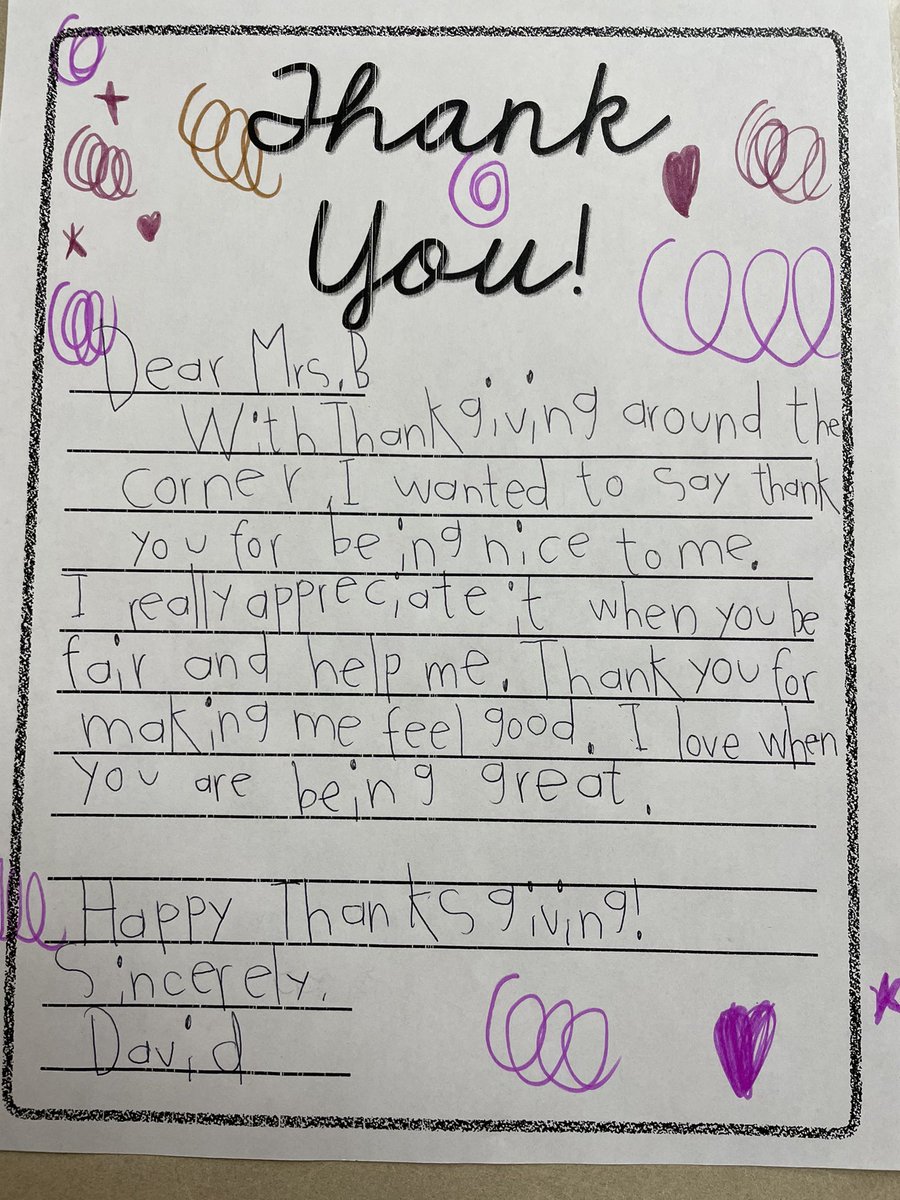 Thank
You!
Dear Mrs. B
With Thankgiving around the
corner, I wanted to say thank
you for being nice to me.
I really appreciate it when you be
fair and help me. Thank you for
making me feel good. I love when
you are being great.
Happy Thanksgiving!
Sincerely,
David